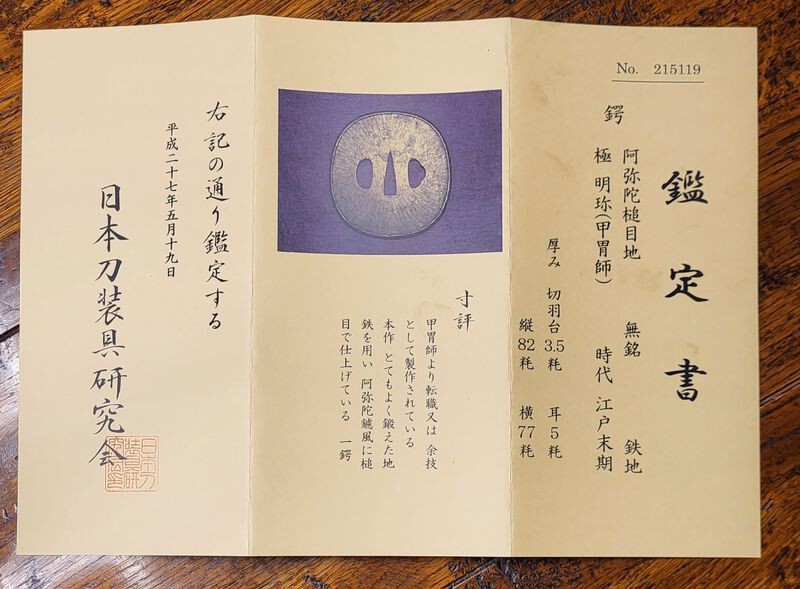 No. 215119
鑑定書
鍔
阿弥陀槌目地 無銘 鉄地
極 明珎(甲冑師) 時代 江戸末期
厚み 切羽台3.5粍 耳5粍
縦82粍 横77粍
寸評
甲冑師より転職又は 余技
として製作されている
本作 とてもよく鍛えた地
鉄を用い 阿弥陀鑢風に槌
目で仕上げている 一鍔
右記の通り鑑定する
平成二十七年五月十九日
日本刀装具研究会